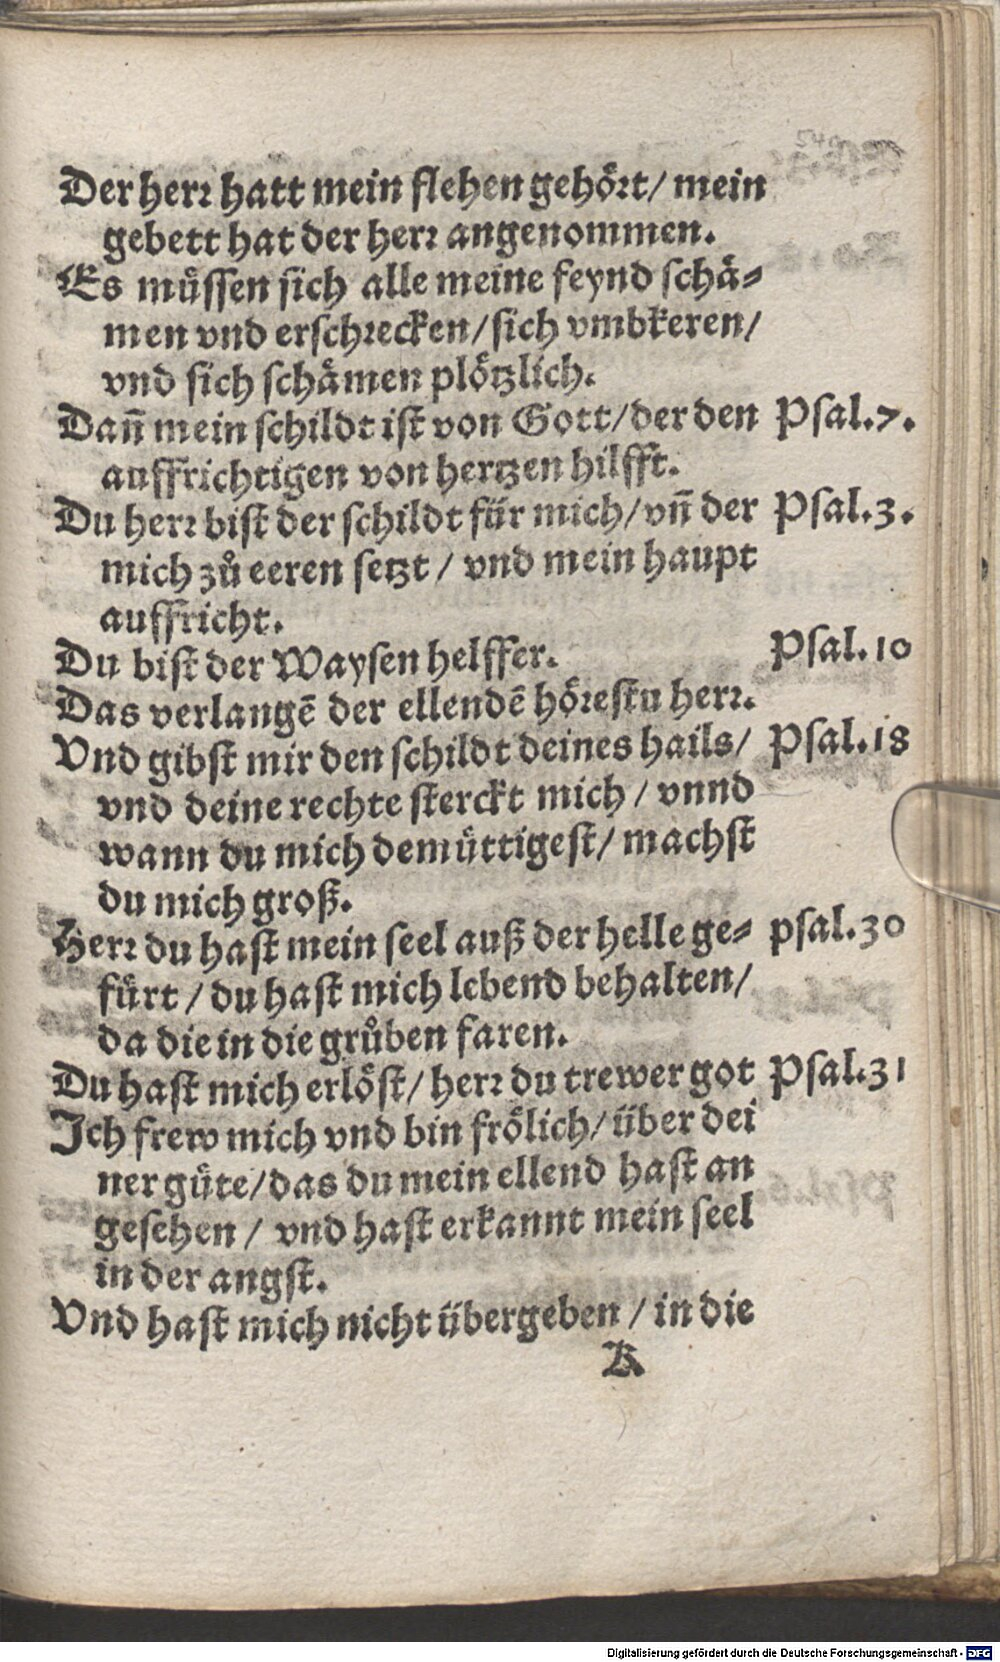 Der herr hatt mein flehen gehoͤrt/ mein
gebett hat der herr angenommen.
Es muͤssen sich alle meine feynd schaͤ⸗
men vnd erschrecken/ sich vmbkeren/
vnd sich schaͤmen ploͤtzlich.
Dañ mein schildt ist von Gott/ der den Psal.7.
auffrichtigen von hertzen hilfft.
Du herr bist der schildt fuͤr mich/ vñ der Psal.3.
mich zuͦ eeren setzt / vnd mein haupt
auffricht.
Du bist der Waysen helffer. Psal.10
Das verlangē der ellendē hoͤrestu herr.
Vnd gibst mir den schildt deines hails/ Psal.18
vnd deine rechte sterckt mich / vnnd
wann du mich demuͤttigest/ machst
du mich groß.
Herr du hast mein seel auß der helle ge⸗ psal.30
fuͤrt / du hast mich lebend behalten/
da die in die gruͦben faren.
Du hast mich erloͤst/ herr du trewer got Psal.31
Ich frew mich vnd bin froͤlich/ uͤber dei
ner guͤte/ das du mein ellend hast an
gesehen / vnd hast erkannt mein seel
in der angst.
Vnd hast mich nicht uͤbergeben / in die
K
Digitalisierung gefördert durch die Deutsche Forschungsgemeinschaft - DFG